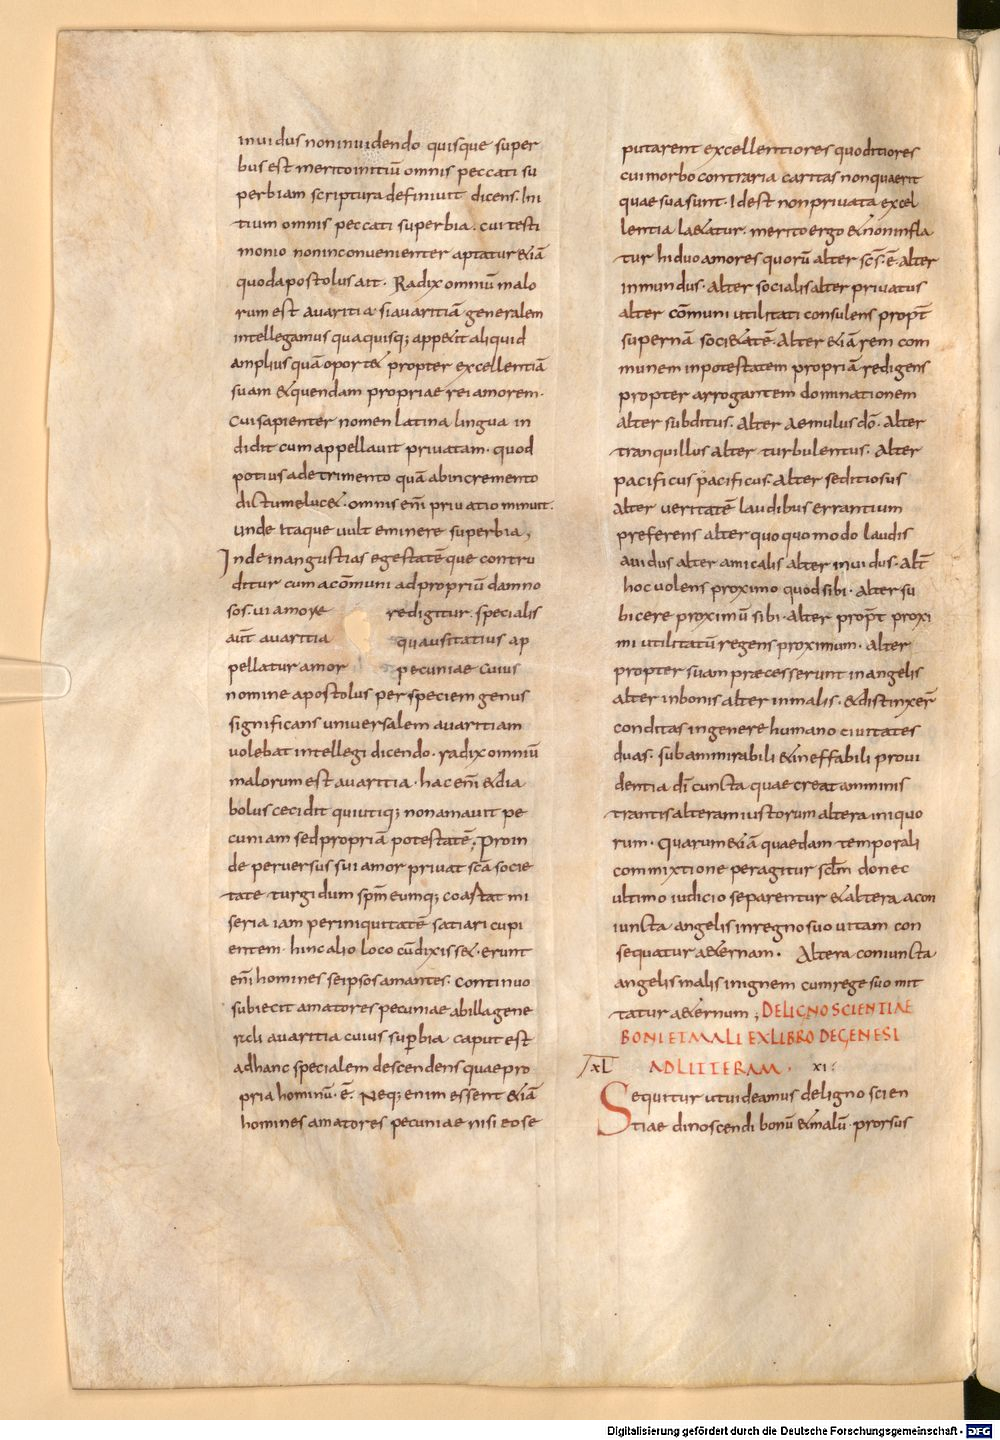 inuidus non inuidendo quisque super
bus est merito initiū omnis peccati su
perbiam scriptura definiuit dicens. Ini
tium omnis peccati superbia. cui testi
monio non inconuenienter aptatur &iā
quod apostolus ait. Radix omniū malo
rum est auaritia si auaritiā generalem
intellegamus qua quisq; appe&it aliquid
amplius quā oport& propter excellentiā
suam & quendam propriae rei amorem.
Cui sapienter nomen latina lingua in
didit cum appellauit priuatam. quod
potius a detrimento quā ab incremento
dictum eluc&. omnis enī priuatio minuit.
Unde Itaque uult eminere superbia;
Inde in angustias egestatēque contru
ditur cum a cōmuni ad propriū damno
so sui amore redigitur. specialis
aūt auaritia qua usitatius ap
pellatur amor pecuniae Cuius
nomine apostolus per speciem genus
significans uniuersalem auaritiam
uolebat intellegi dicendo. radix omniū
malorum est auaritia. hac enī & dia
bolus cecidit qui utiq; non amauit pe
cuniam sed propriā potestatē; Proin
de peruersus sui amor priuat scā socie
tate turgidum spm̄ eumq; coartat mi
seria iam per iniquitatē satiari cupi
entem. hinc alio loco cū dixiss&. erunt
enī homines seipsos amantes. Continuo
subiecit amatores pecuniae ab illa gene
rali auaritia cuius supbia caput est
ad hanc specialem descendens quae pro
pria hominū. ē. Neq; enim essent &iā
homines amatores pecuniae nisi eo se
putarent excellentiores quo ditiores
cui morbo contraria caritas non quaerit
quae sua sunt. Id est non priuata excel
lentia la&atur. merito ergo & non infla
tur hi duo amores quorū alter scs̄. ē. alter
inmundus. alter socialis alter priuatus
alter cōmuni utilitati consulens propt̄
supernā soci&atē. Alter &iā rem com
munem in potestatem propriā redigens
propter arrogantem dominationem
alter subditus. Alter aemulus dō. Alter
tranquillus alter turbulentus. Alter
pacificus pacificus. Alter seditiosus
alter ueritatē laudibus errantium
preferens alter quoquo modo laudis
auidus alter amicalis alter inuidus. Alt̄
hoc uolens proximo quod sibi. Alter su
bicere proximū sibi. Alter propt̄ proxi
mi utilitatū regens proximum. Alter
propter suam praecesserunt in angelis
alter in bonis alter in malis. & distinxer̄
conditas in genere humano ciuitates
duas. sub ammirabili & ineffabili proui
dentia dī cuncta quae creat amminis
trantis alteram iustorum altera iniquo
rum. Quarum &iā quaedam temporali
commixtione peragitur sclm̄ donec
ultimo iudicio separentur & altera a con
iuncta angelis in regno suo uitam con
sequatur a&ernam. Altera coniuncta
angelis malis in ignem cum rege suo mit
tatur a&ernum; DE LIGNO SCIENTIAE
BONI ET MALI EX LIBRO DE GENESI
xL AD LITTERAM. xi:
Sequitur ut uideamus de ligno scien
tiae dinoscendi bonū & malū. prorsus
Digitalisierung gefördert durch die Deutsche Forschungsgemeinschaft - DFG